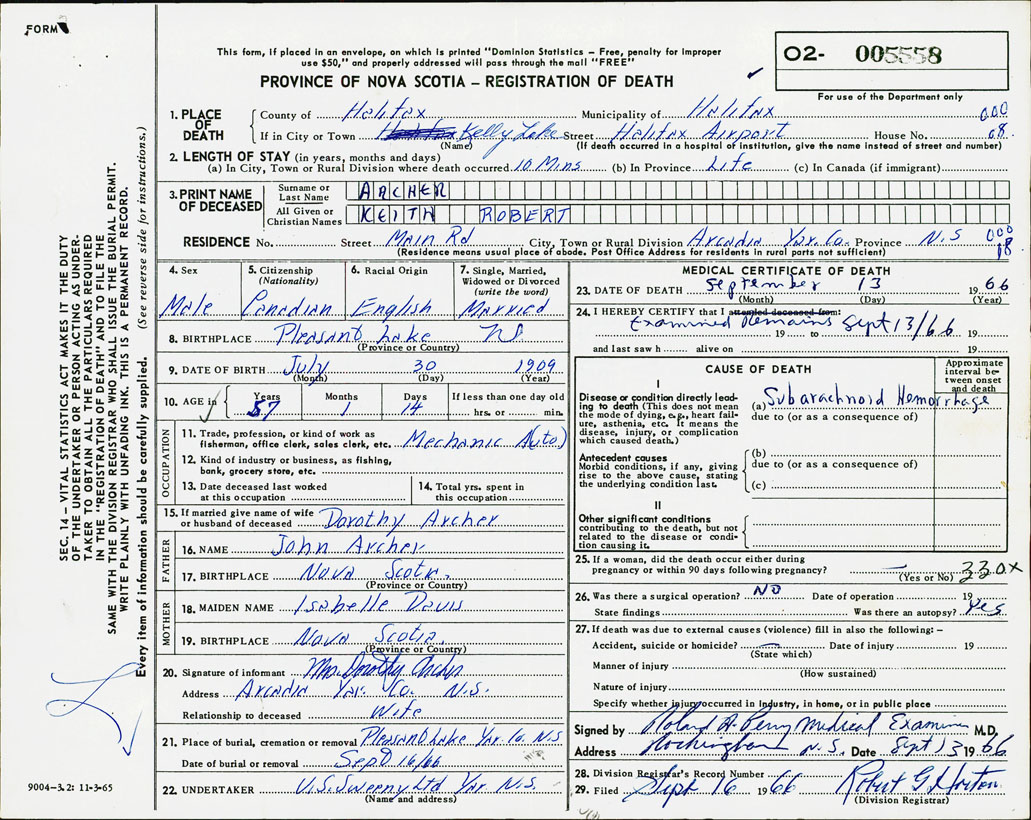 FORM
O2- 005558
This form, if placed in an envelope, on which is printed "Dominion Statistics – Free, penalty for improper
use $50," and properly addressed will pass through the mail "FREE"
PROVINCE OF NOVA SCOTIA – REGISTRATION OF DEATH
For use of the Department only
1. PLACE OF DEATH County of Halifax Municipality of Halifax 000
If in City or Town Kelly Lake Street Halifax Airport House No. 08
(Name) (If death occurred in a hospital or institution, give the name instead of street and number)
2. LENGTH OF STAY (in years, months and days)
(a) In City, Town or Rural Division where death occurred 10 Mins (b) In Province Life (c) In Canada (if immigrant)
3. PRINT NAME OF DECEASED
Surname or Last Name ARCHER
All Given or Christian Names KEITH ROBERT
RESIDENCE No. Street Main Rd City, Town or Rural Division Arcadia Yar. Co. Province N.S 000
(Residence means usual place of abode. Post Office Address for residents in rural parts not sufficient) 18
4. Sex
Male
5. Citizenship (Nationality)
Canadian
6. Racial Origin
English
7. Single, Married, Widowed or Divorced (write the word)
Married
8. BIRTHPLACE Pleasant Lake NS
(Province or Country)
9. DATE OF BIRTH July 30 1909
(Month) (Day) (Year)
10. AGE in Years Months Days If less than one day old
57 1 14 hrs. or min.
OCCUPATION
11. Trade, profession, or kind of work as
fisherman, office clerk, sales clerk, etc. Mechanic (Auto)
12. Kind of industry or business, as fishing,
bank, grocery store, etc.
13. Date deceased last worked at this occupation
14. Total yrs. spent in this occupation
15. If married give name of wife
or husband of deceased Dorothy Archer
FATHER
16. NAME John Archer
17. BIRTHPLACE Nova Scotia
(Province or Country)
MOTHER
18. MAIDEN NAME Isabelle Davis
19. BIRTHPLACE Nova Scotia
(Province or Country)
20. Signature of informant Mrs. Dorothy Archer
Address Arcadia Yar. Co. N.S.
Relationship to deceased Wife
21. Place of burial, cremation or removal Pleasant Lake Yar. Co. N.S
Date of burial or removal Sept 16/66
22. UNDERTAKER V.S. Sweeny Ltd Yar. N.S.
(Name and address)
MEDICAL CERTIFICATE OF DEATH
23. DATE OF DEATH September 13 1966
(Month) (Day) (Year)
24. I HEREBY CERTIFY that I attended deceased from:
Examined Remains 19 to Sept 13/66 19
and last saw h alive on 19
CAUSE OF DEATH
Approximate interval between onset and death
I
Disease or condition directly leading to death (This does not mean the mode of dying, e.g., heart failure, asthenia, etc. It means the disease, injury, or complication which caused death.)
(a) Subarachnoid Hemorrhage
due to (or as a consequence of)
Antecedent causes
Morbid conditions, if any, giving rise to the above cause, stating the underlying condition last.
(b)
due to (or as a consequence of)
(c)
II
Other significant conditions
contributing to the death, but not related to the disease or condition causing it.
25. If a woman, did the death occur either during
pregnancy or within 90 days following pregnancy?
(Yes or No) 330X
26. Was there a surgical operation? NO Date of operation 19
State findings Was there an autopsy? Yes
27. If death was due to external causes (violence) fill in also the following: –
Accident, suicide or homicide? Date of injury 19
(State which)
Manner of injury
(How sustained)
Nature of injury
Specify whether injury occurred in industry, in home, or in public place
Signed by Roland A. Perry Medical Examiner M.D.
Address Rockingham N.S. Date Sept 13 1966
28. Division Registrar's Record Number
29. Filed Sept 16 1966 Robert G. Horton
(Division Registrar)
SEC. 14 – VITAL STATISTICS ACT MAKES IT THE DUTY
OF THE UNDERTAKER OR PERSON ACTING AS UNDER-
TAKER TO OBTAIN ALL THE PARTICULARS REQUIRED
IN THE "REGISTRATION OF DEATH" AND TO FILE THE
SAME WITH THE DIVISION REGISTRAR WHO SHALL ISSUE THE BURIAL PERMIT.
WRITE PLAINLY WITH UNFADING INK. THIS IS A PERMANENT RECORD.
Every item of information should be carefully supplied. (See reverse side for instructions.)
9004-3.2: 11-3-65